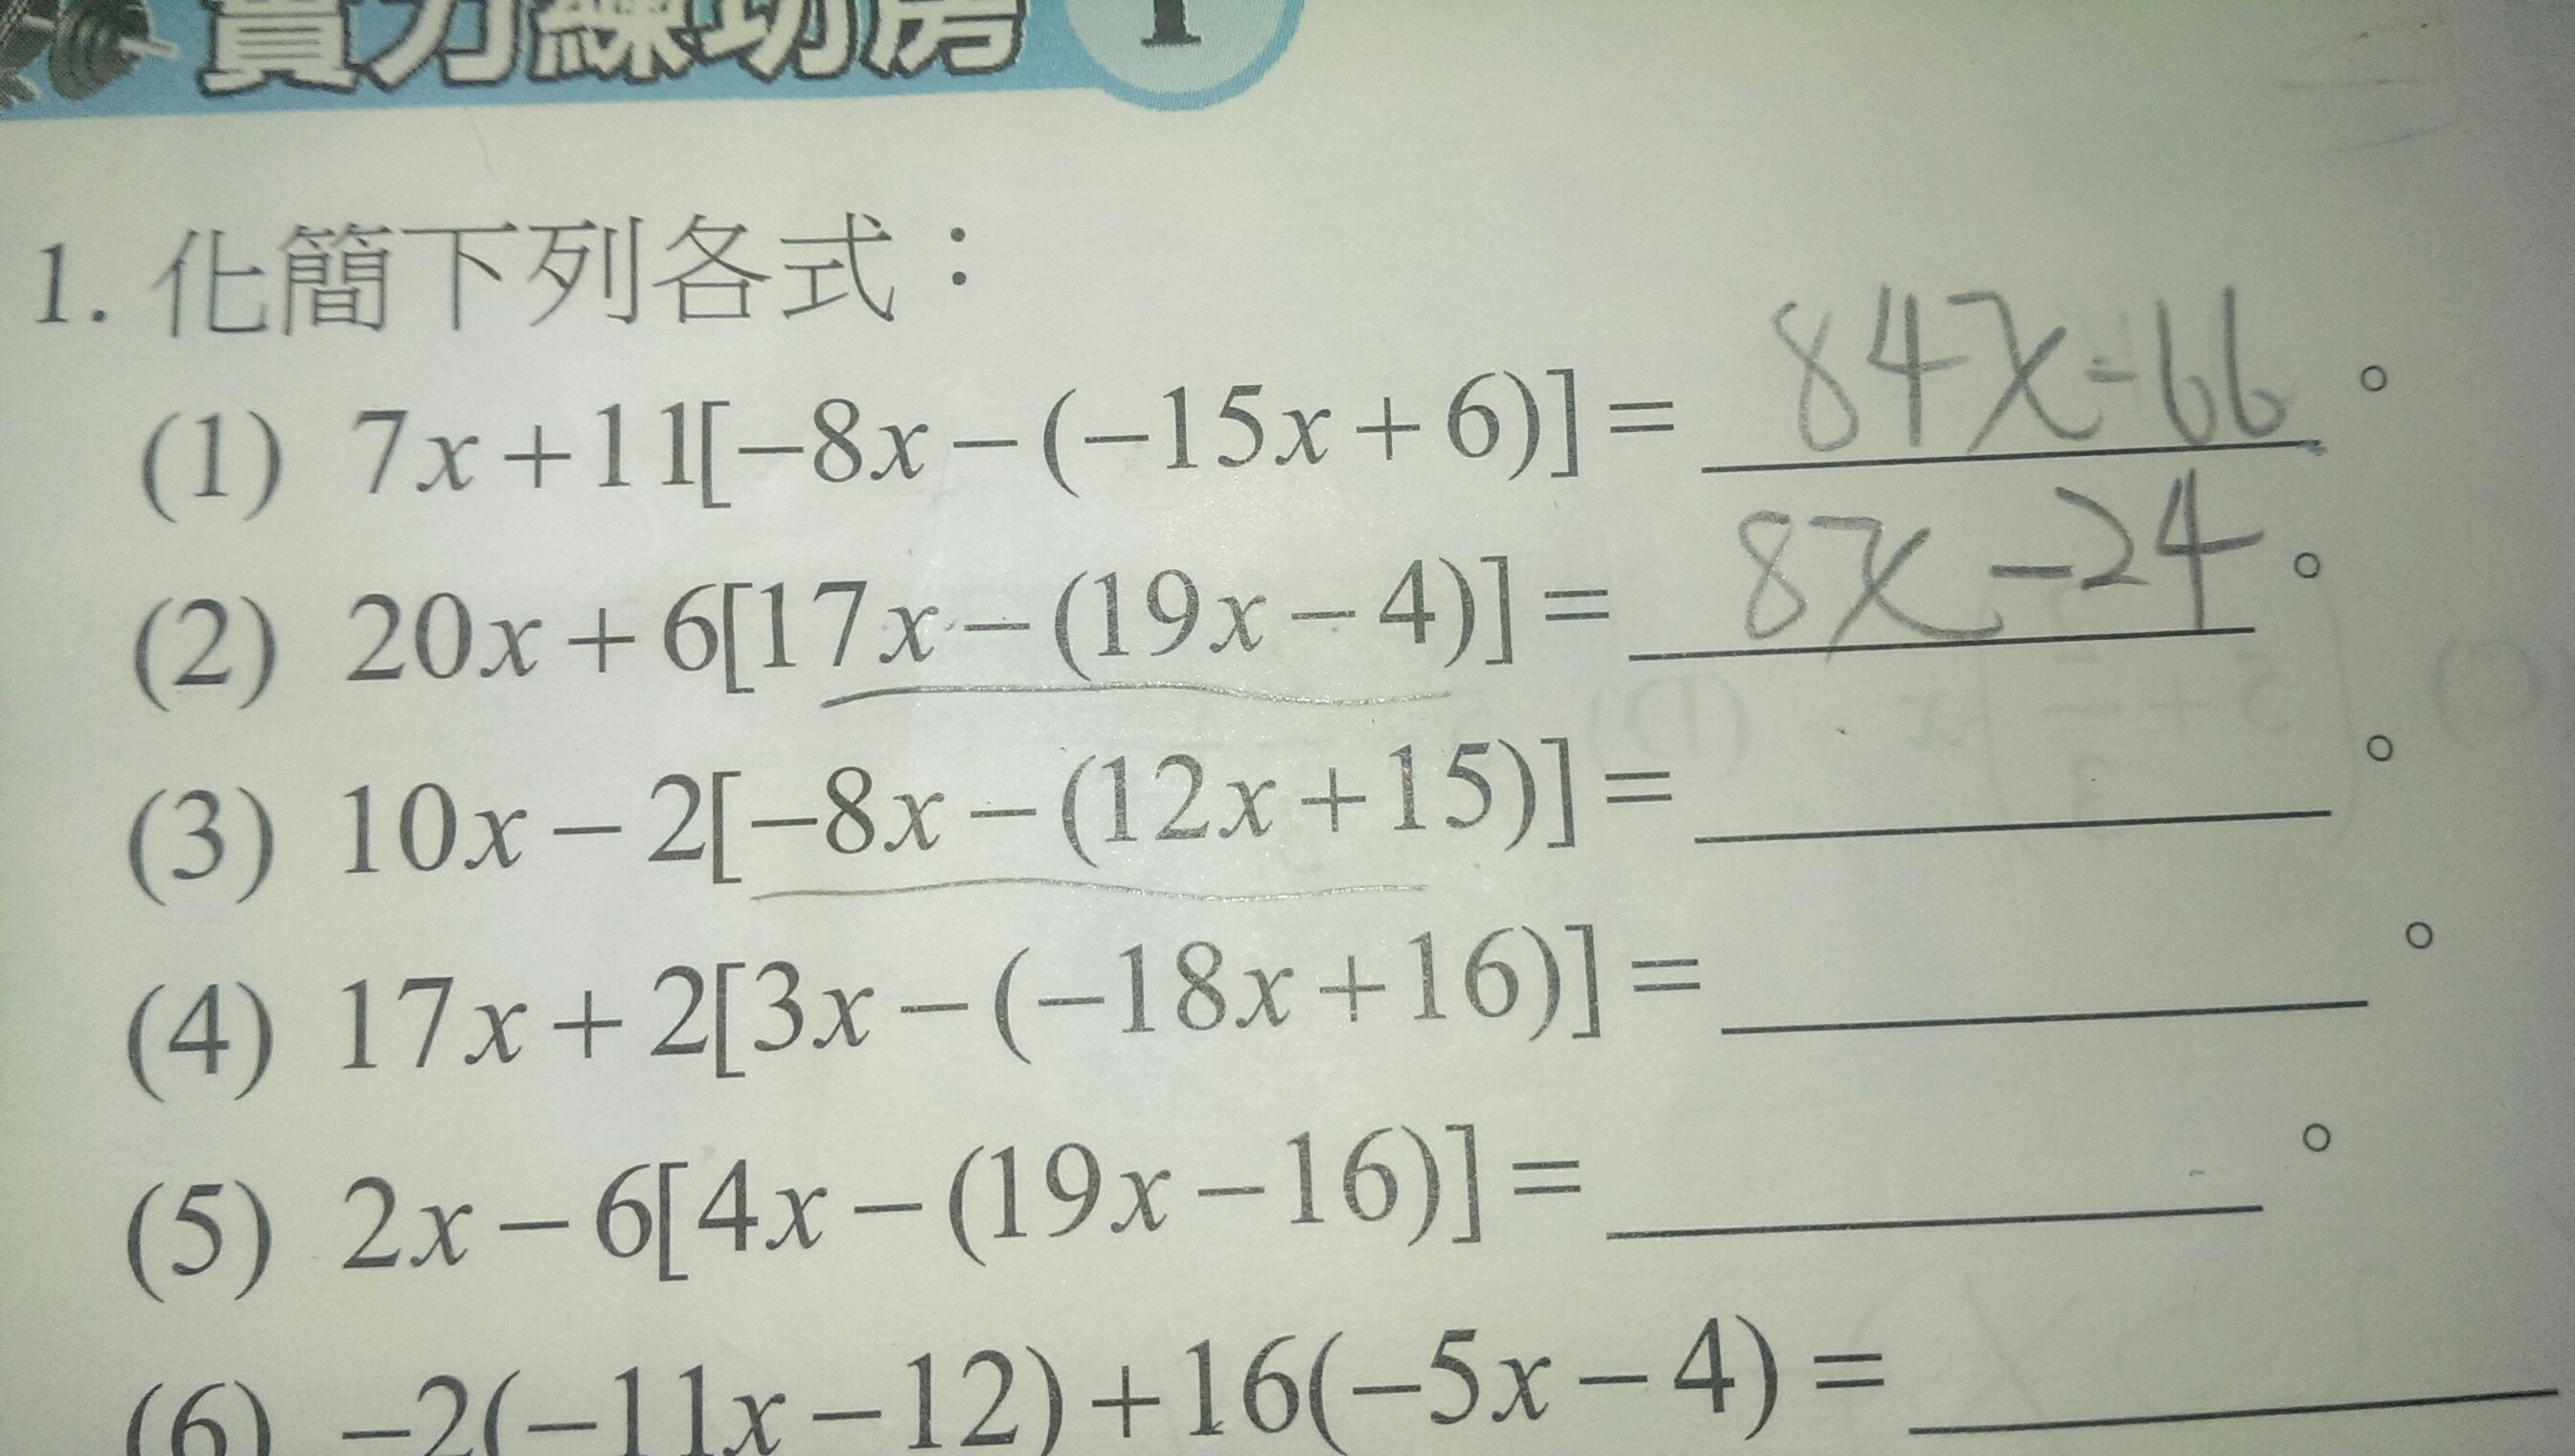 實力練功房 1
1. 化簡下列各式：
(1) 7x+11[-8x-(-15x+6)]= 84x-66 。
(2) 20x+6[17x-(19x-4)]= 8x-24 。
(3) 10x-2[-8x-(12x+15)]= 。
(4) 17x+2[3x-(-18x+16)]= 。
(5) 2x-6[4x-(19x-16)]= 。
(6) -2(-11x-12)+16(-5x-4)=